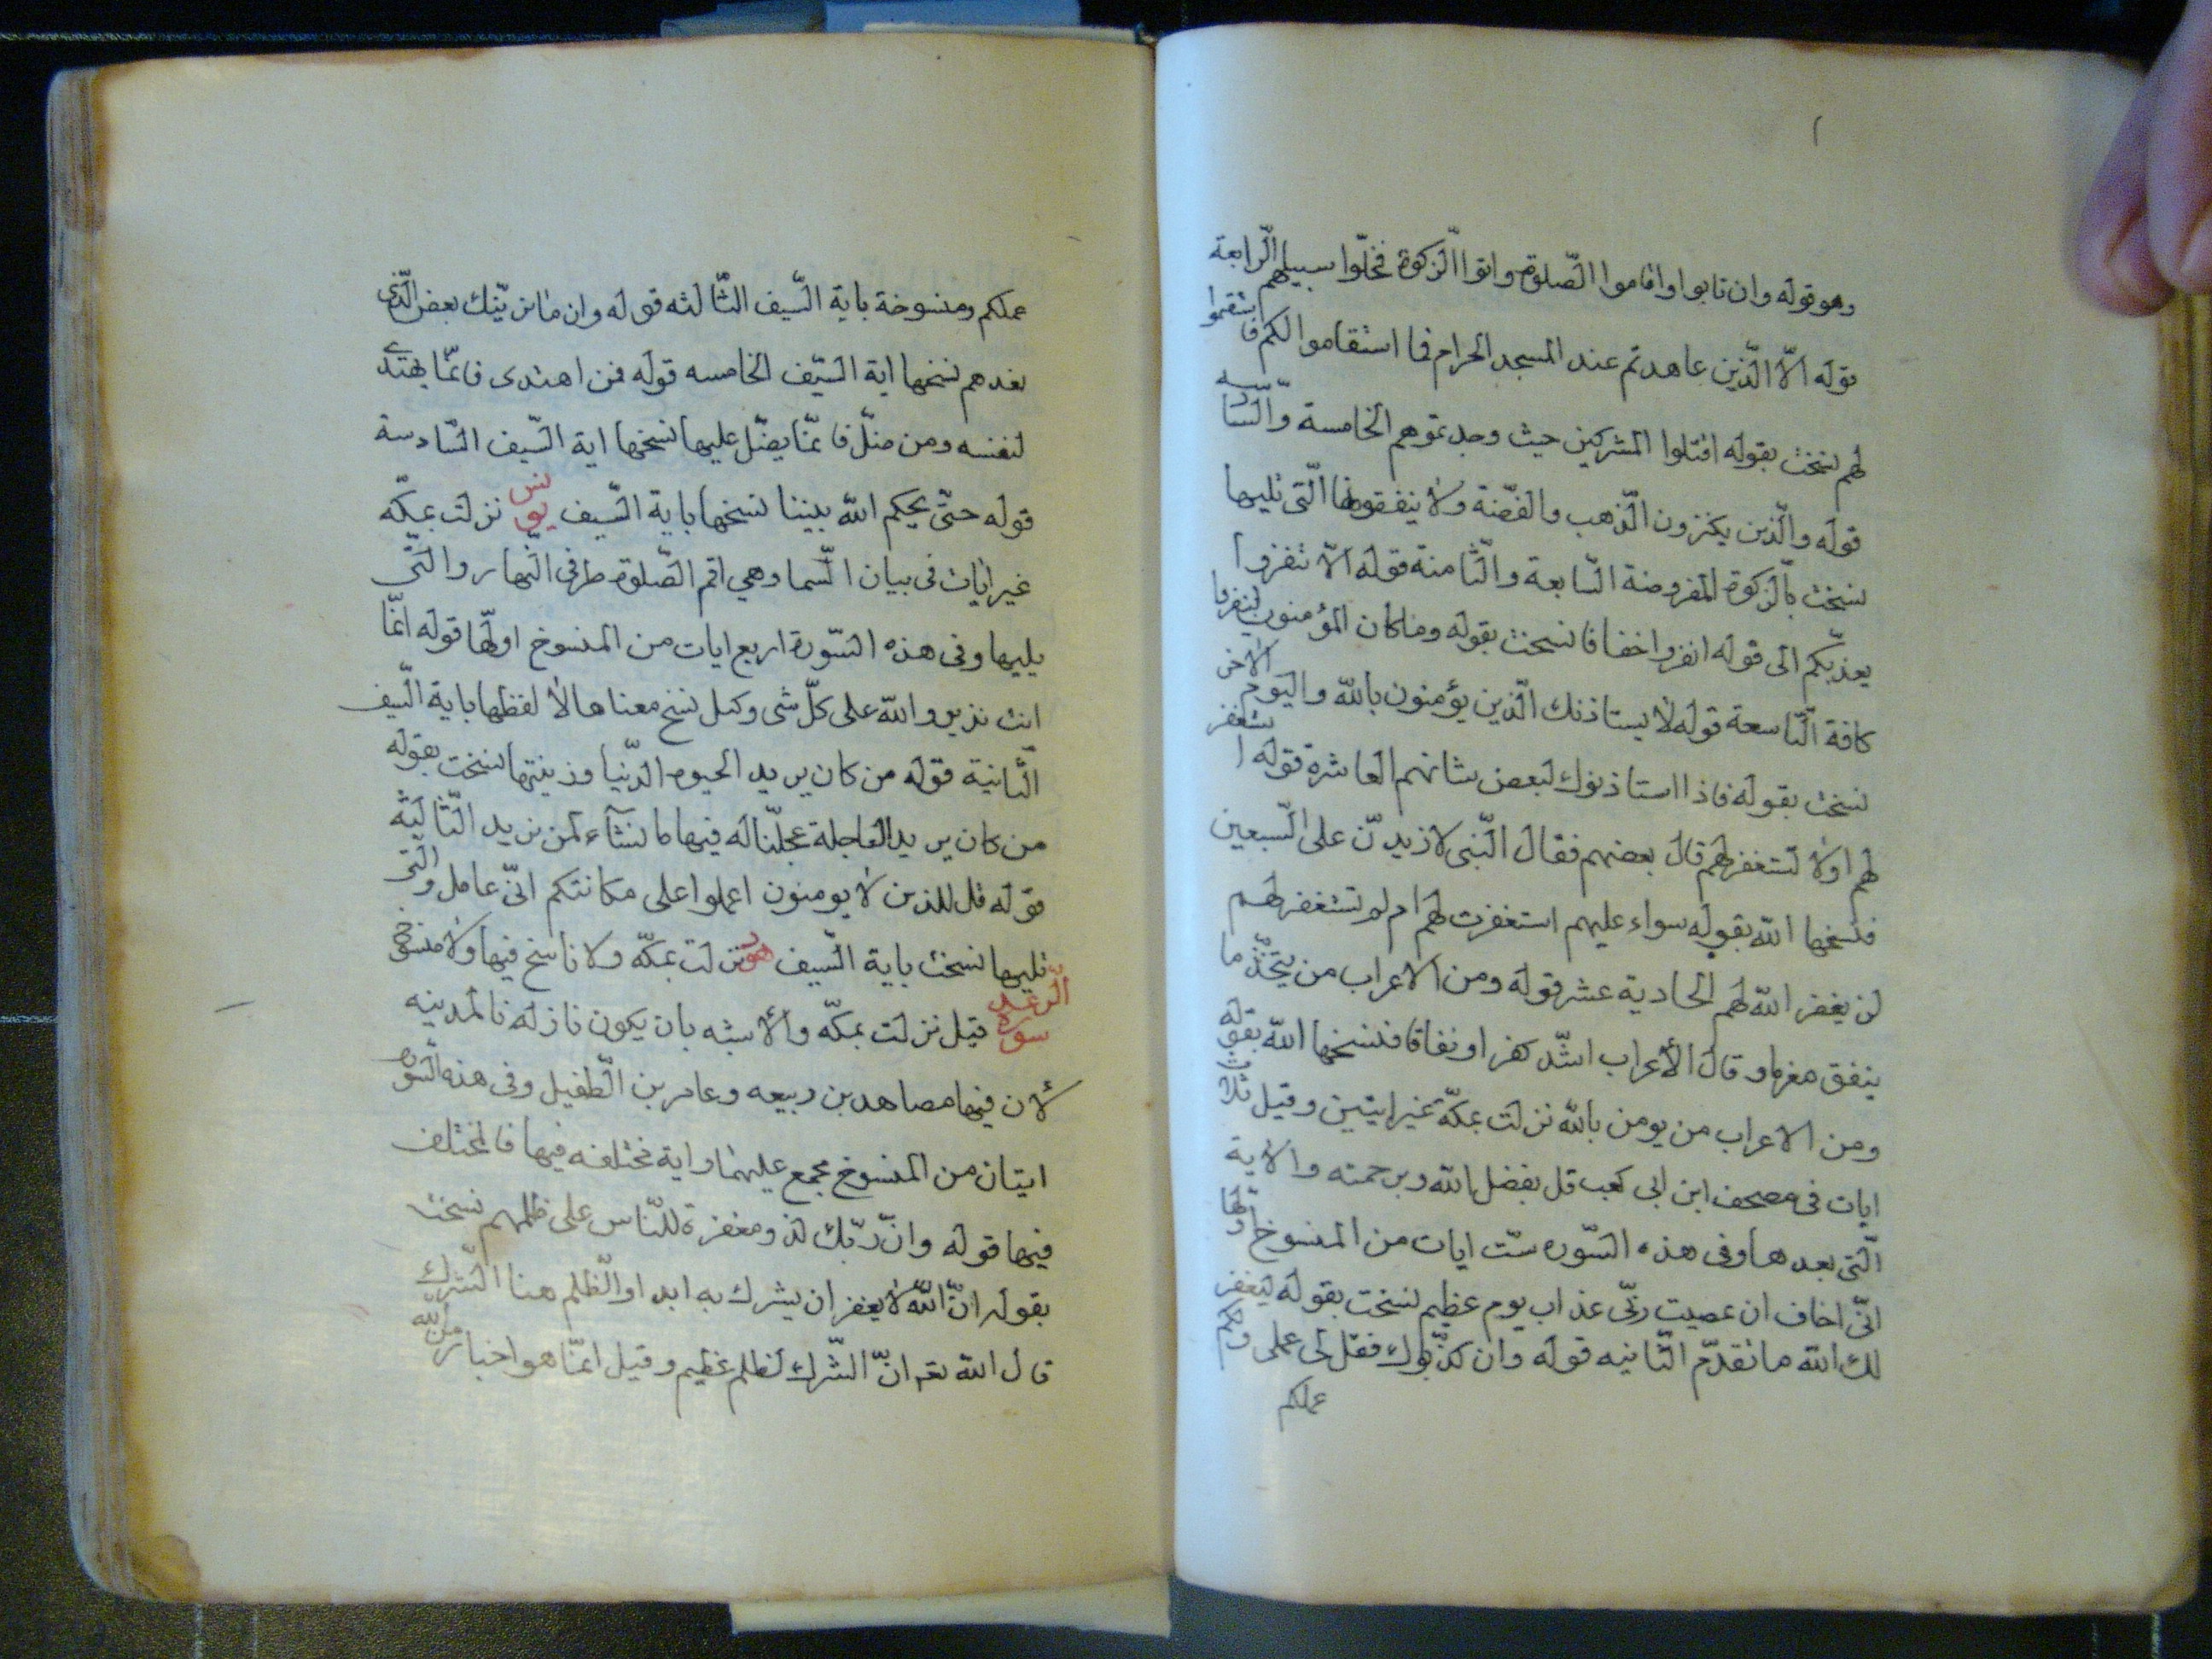 وهو قوله وان تابوا واقاموا الصّلوة واتوا الزّكوة فخلّوا سبيلهم الرّابعة
قوله الاّ الّذين عاهدتم عند المسجد الحرام فما استقاموا لكم فاستقيموا
لهم نسخت بقوله اقتلوا المشركين حيث وجدتموهم الخامسة والسّادسه
قوله والّذين يكنزون الذّهب والفضّة ولا ينفقونها الّتى تليها
نسخت بالزّكوة المفروضة السّابعة والثّامنة قوله الاّ تنفروا
يعذبّكم الى قوله انفروا خفافا نسخت بقوله وما كان المؤمنون لينفروا
كافة التّاسعة قوله لا يستاذنك الّذين يؤمنون بالله واليوم الاخر
نسخت بقوله فاذا استاذنوك لبعض شانهم العاشرة قوله استغفر
لهم اولا تستغفر لهم قال بعضهم فقال النّبى لازيدنّ على السّبعين
فنسخها الله بقوله سواء عليهم استغفرت لهم ام لم تستغفر لهم
لن يغفر الله لهم الحادية عشر قوله ومن الاعراب من يتّخذ ما
ينفق مغرما وقال الأعراب اشّد كفرا ونفاقا فنسخها الله بقوله
ومن الاعراب من يومن بالله نزلت بمكّة غير ايتين وقيل ثلاث
ايات فى مصحف ابن ابى كعب قل بفضل الله وبرحمته والاية
الّتى بعدها وفى هذه السّوره ستّ ايات من المنسوخ اوّلها
انّى اخاف ان عصيت ربّى عذاب يوم عظيم نسخت بقوله ليغفر
لك الله ما تقدّم الثّانيه قوله وان كذّبوك فقل لى عملى ولكم
عملكم
عملكم ومنسوخة باية السّيف الثّالثه قوله وان ما نرينّك بعض الّذى
نعدهم نسخها اية السّيف الخامسه قوله فمن اهتدى فانمّا يهتدى
لنفسه ومن ضلّ فانمّا يضّل عليها نسخها اية السّيف السّادسة
قوله حتّى يحكم الله بيننا نسخها باية السّيف يونس نزلت بمكّه
غير ايات فى بيان السّما وهي اقم الصّلوة طرفى النّهار والّتى
يليها وفى هذه السّورة اربع ايات من المنسوخ اولهّا قوله انمّا
انت نذير والله على كلّ شى وكيل نسخ معناها لا لفظها باية السّيف
الثّانية قوله من كان يريد الحيوة الدّنيا وزينتها نسخت بقوله
من كان يريد العاجلة عجلّنا له فيها ما نشآء لمن نريد الثّالثة
قوله قل للذين لا يومنون اعملوا على مكانتكم انّى عامل والّتى
تليها نسخت باية السّيف هود نزلت بمكّه ولا ناسخ فيها ولا منسوخ
سورة الرّعد قيل نزلت بمكّه والأشبه بان يكون نازله فالمدينه
لأن فيها مصاهد بن ربيعه وعامر بن الطّفيل وفى هذه السّوره
ايتان من المنسوخ مجمع عليهما واية مختلفه فيها فالمختلف
فيها قوله وانّ ربّك لذو مغفرة للنّاس على ظلمهم نسخت
بقوله انّ الله لا يغفر ان يشرك به ابدا والظّلم هنا الشّرك
قال الله تعم انّ الشّرك لظلم عظيم وقيل انمّا هو اخبار من الله